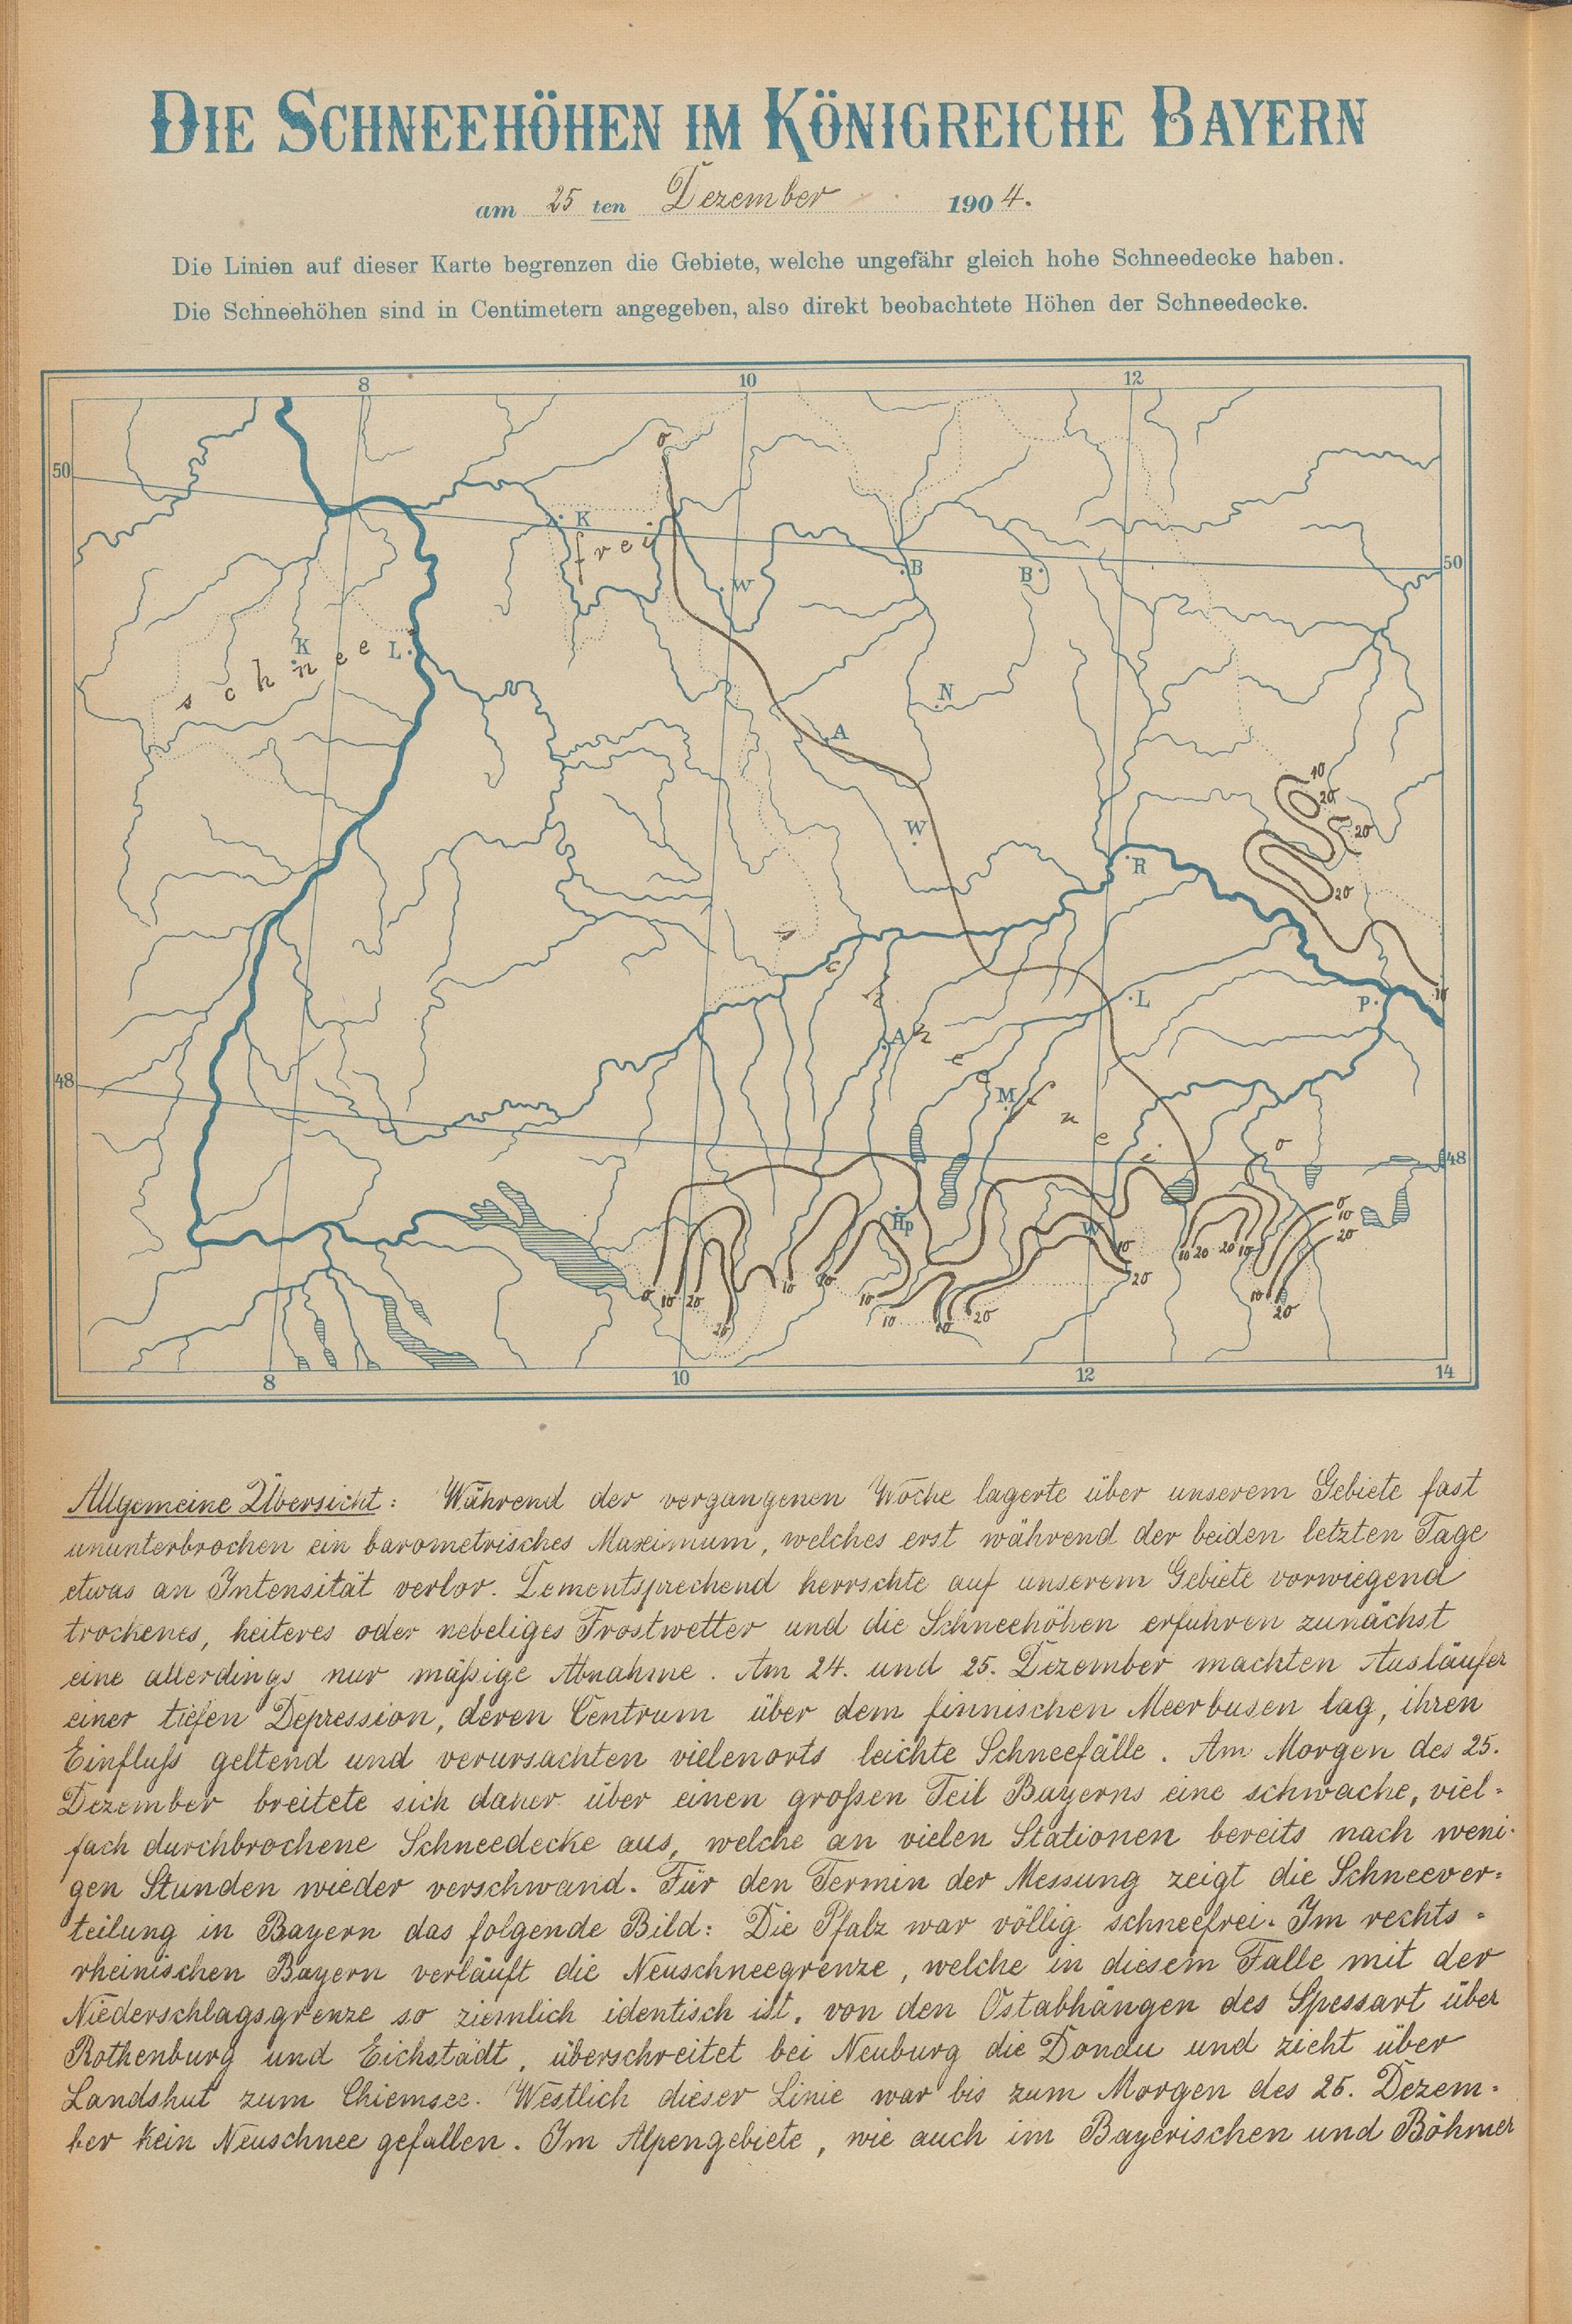 DIE SCHNEEHÖHEN IM KÖNIGREICHE BAYERN
am 25 ten Dezember 1904.
Die Linien auf dieser Karte begrenzen die Gebiete, welche ungefähr gleich hohe Schneedecke haben.
Die Schneehöhen sind in Centimetern angegeben, also direkt beobachtete Höhen der Schneedecke.
8 10 12
0
50
K
frei
50
B B
W
K L
schnee
N
A
10
20
W
20
R
20
L
P
10
A
schneefrei
48
M
0
48
Hp
W
0
10
20
10
10 20 20 10
20
0 10 20
10 10
10
10
20
20
10
10
20
8 10 12 14
Allgemeine Übersicht: Während der vergangenen Woche lagerte über unserem Gebiete fast
ununterbrochen ein barometrisches Maximum, welches erst während der beiden letzten Tage
etwas an Intensität verlor. Dementsprechend herrschte auf unserem Gebiete vorwiegend
trockenes, heiteres oder nebeliges Frostwetter und die Schneehöhen erfuhren zunächst
eine allerdings nur mäßige Abnahme. Am 24. und 25. Dezember machten Ausläufer
einer tiefen Depression, deren Centrum über dem finnischen Meerbusen lag, ihren
Einfluß geltend und verursachten vielenorts leichte Schneefälle. Am Morgen des 25.
Dezember breitete sich daher über einen großen Teil Bayerns eine schwache, viel-
fach durchbrochene Schneedecke aus, welche an vielen Stationen bereits nach weni-
gen Stunden wieder verschwand. Für den Termin der Messung zeigt die Schneever-
teilung in Bayern das folgende Bild: Die Pfalz war völlig schneefrei. Im rechts-
rheinischen Bayern verläuft die Neuschneegrenze, welche in diesem Falle mit der
Niederschlagsgrenze so ziemlich identisch ist, von den Ostabhängen des Spessart über
Rothenburg und Eichstädt, überschreitet bei Neuburg die Donau und zieht über
Landshut zum Chiemsee. Westlich dieser Linie war bis zum Morgen des 25. Dezem-
ber kein Neuschnee gefallen. Im Alpengebiete, wie auch im Bayerischen und Böhmer